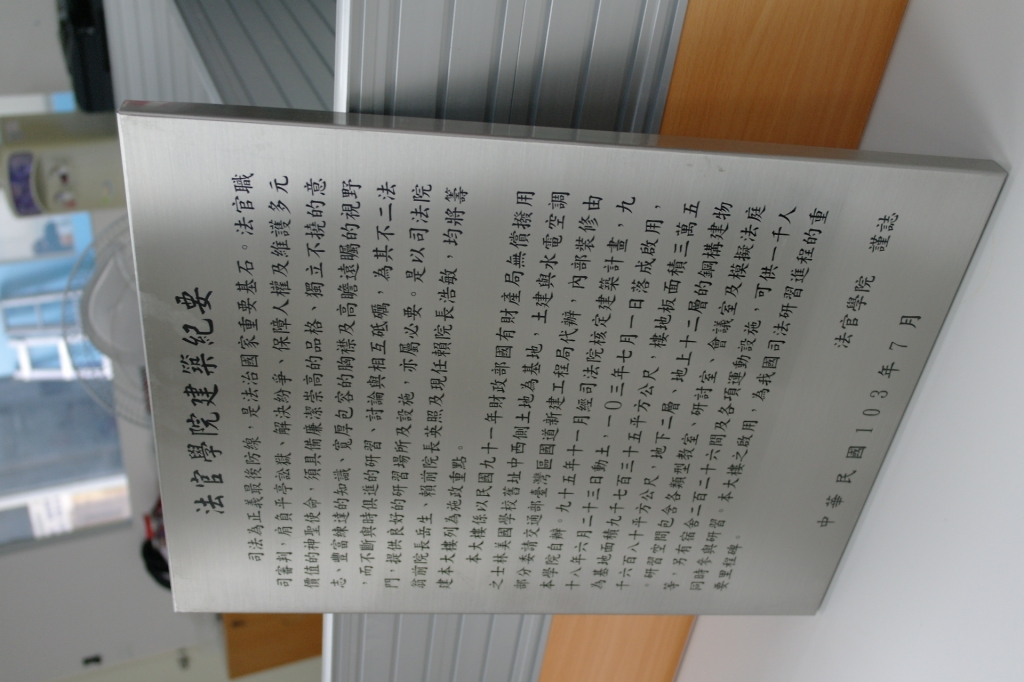 法官學院建築紀要
司法為正義最後防線，是法治國家重要基石。法官職
司審判，肩負平亭訟獄、解決紛爭、保障人權及維護多元
價值的神聖使命，須具備廉潔崇高的品格、獨立不撓的意
志、豐富練達的知識、寬厚包容的胸襟及高瞻遠矚的視野
，而不斷與時俱進的研習、討論與相互砥礪，為其不二法
門。提供良好的研習場所及設施，亦屬必要。是以司法院
翁前院長岳生、賴前院長英照及現任賴院長浩敏，均將籌
建本大樓列為施政重點。
本大樓係以民國九十一年財政部國有財產局無償撥用
之士林美國學校舊址中西側土地為基地，土建與水電空調
部分委請交通部臺灣區國道新建工程局代辦，內部裝修由
本學院自辦。九十五年十一月經司法院核定建築計畫，九
十八年六月二十三日動土，一０三年七月一日落成啟用，
為基地面積九千七百三十五平方公尺，樓地板面積三萬五
十六百八十平方公尺，地下二層、地上十二層的鋼構建物
。研習空間包含各類型教室、研討室、會議室及模擬法庭
等，另有宿舍二百二十六間及各項運動設施，可供一千人
同時參與研習。本大樓之啟用，為我國司法研習進程的重
要里程碑。
法官學院 謹誌
中華民國103年7月